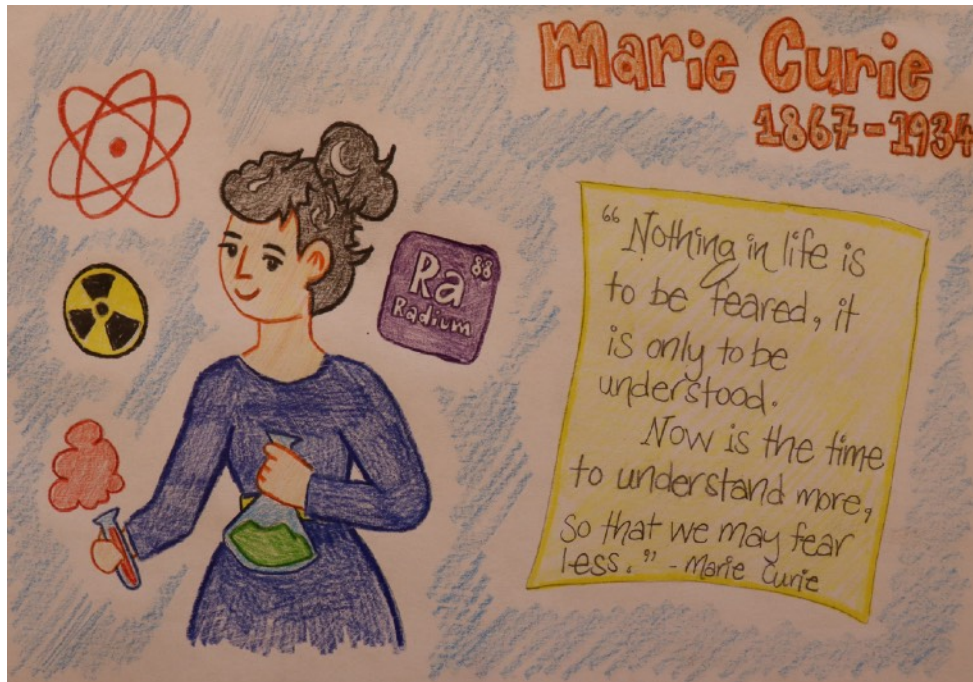 Marie Curie
1867-1934
Ra 88
Radium
"Nothing in life is
to be feared, it
is only to be
understood.
Now is the time
to understand more,
so that we may fear
less." - Marie Curie